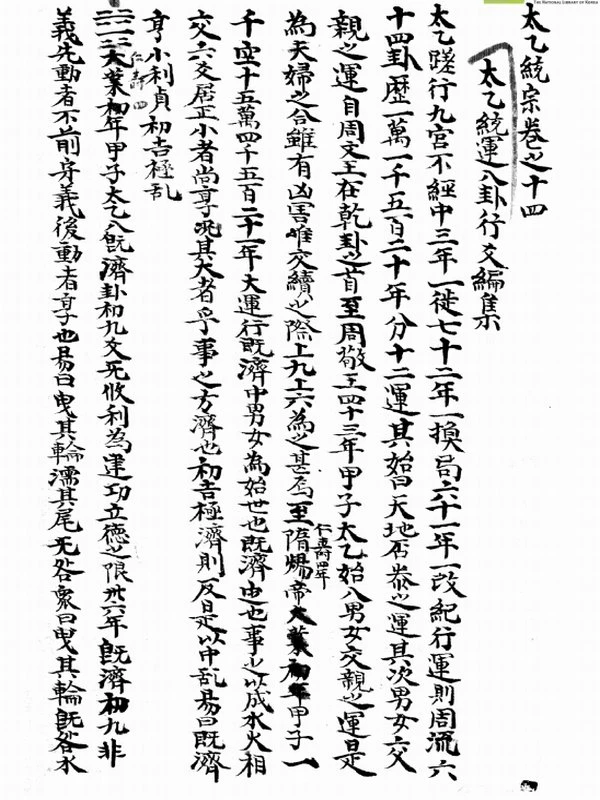 THE NATIONAL LIBRARY OF KOREA
太乙統宗卷之十四
太乙統運八卦行爻編集
太乙蹉行九宮不經中三年一徙七十二年一換局六十一年一改紀行運則周流六
十四卦歷一萬一千五百二十年分十二運其始曰天地否泰之運其次男女六交
親之運自周文王在乾卦之首至周敬王四十三年甲子太乙始八男女交親之運是
為夫婦之合雖有凶害唯交續之際上九上六為之甚焉至隋煬帝大業初年甲子一
仁壽四年
千空十五萬四千五百二十一年大運行既濟中男女為始世也既濟申也事之以成水火相
交六爻居正小者尚亨况其大者乎事之方濟也初吉極濟則反是以中乱易曰既濟
亨小利貞初吉極乱
仁壽四
大業初年甲子太乙八既濟卦初九爻死收利為建功立德之限卅六年既濟初九非
義先動者不前身義後動者亨也易曰曳其輪濡其尾无咎象曰曳其輪既咎水